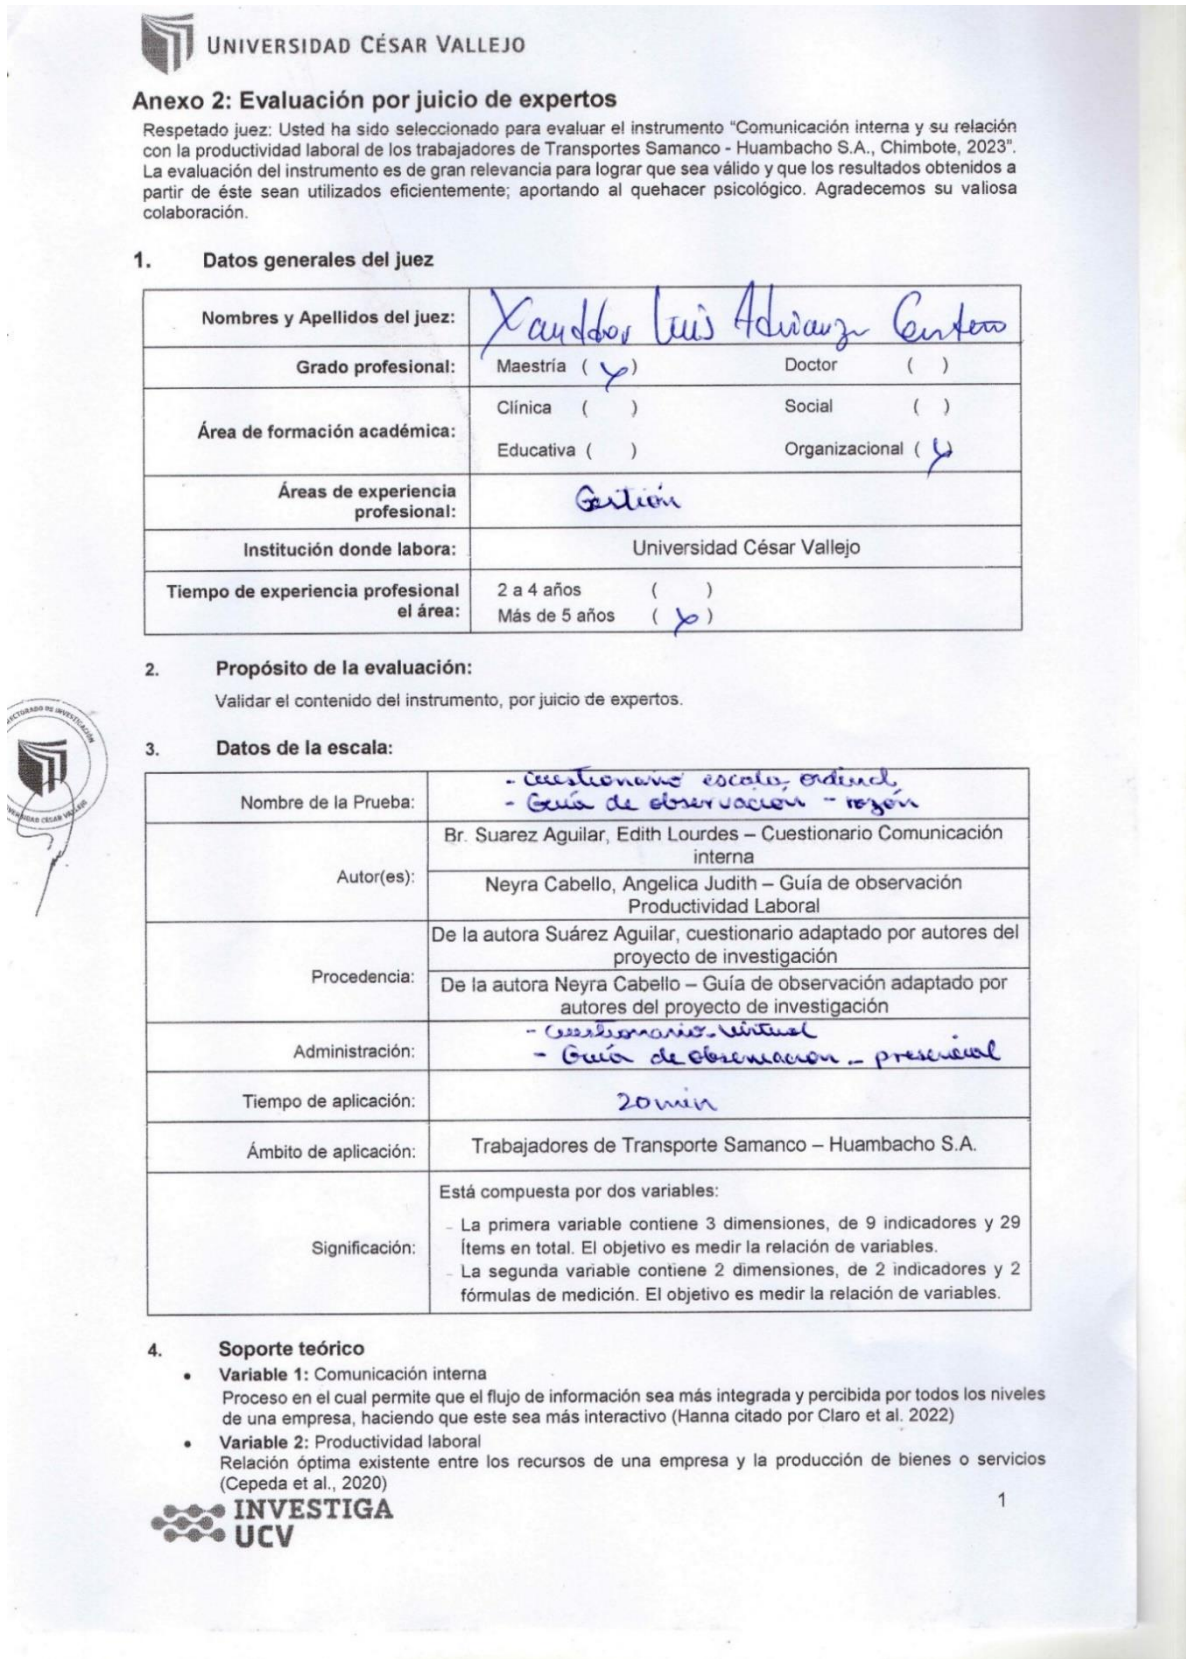 UNIVERSIDAD CÉSAR VALLEJO
Anexo 2: Evaluación por juicio de expertos
Respetado juez: Usted ha sido seleccionado para evaluar el instrumento “Comunicación interna y su relación
con la productividad laboral de los trabajadores de Transportes Samanco - Huambacho S.A., Chimbote, 2023”.
La evaluación del instrumento es de gran relevancia para lograr que sea válido y que los resultados obtenidos a
partir de éste sean utilizados eficientemente; aportando al quehacer psicológico. Agradecemos su valiosa
colaboración.
1. Datos generales del juez
Nombres y Apellidos del juez: Luis
Grado profesional: Maestría ( x ) Doctor ( )
Área de formación académica: Clínica ( ) Social ( )
Educativa ( ) Organizacional ( x )
Áreas de experiencia
profesional: Gestión
Institución donde labora: Universidad César Vallejo
Tiempo de experiencia profesional
el área: 2 a 4 años ( )
Más de 5 años ( x )
2. Propósito de la evaluación:
Validar el contenido del instrumento, por juicio de expertos.
3. Datos de la escala:
Nombre de la Prueba: - Cuestionario escala ordinal
- Guía de observación - razón
Autor(es): Br. Suarez Aguilar, Edith Lourdes – Cuestionario Comunicación
interna
Neyra Cabello, Angelica Judith – Guía de observación
Productividad Laboral
Procedencia: De la autora Suárez Aguilar, cuestionario adaptado por autores del
proyecto de investigación
De la autora Neyra Cabello – Guía de observación adaptado por
autores del proyecto de investigación
Administración: - Cuestionario - virtual
- Guía de observación - presencial
Tiempo de aplicación: 20 min
Ámbito de aplicación: Trabajadores de Transporte Samanco – Huambacho S.A.
Significación: Está compuesta por dos variables:
- La primera variable contiene 3 dimensiones, de 9 indicadores y 29
Ítems en total. El objetivo es medir la relación de variables.
- La segunda variable contiene 2 dimensiones, de 2 indicadores y 2
fórmulas de medición. El objetivo es medir la relación de variables.
4. Soporte teórico
• Variable 1: Comunicación interna
Proceso en el cual permite que el flujo de información sea más integrada y percibida por todos los niveles
de una empresa, haciendo que este sea más interactivo (Hanna citado por Claro et al. 2022)
• Variable 2: Productividad laboral
Relación óptima existente entre los recursos de una empresa y la producción de bienes o servicios
(Cepeda et al., 2020)
INVESTIGA
UCV
1